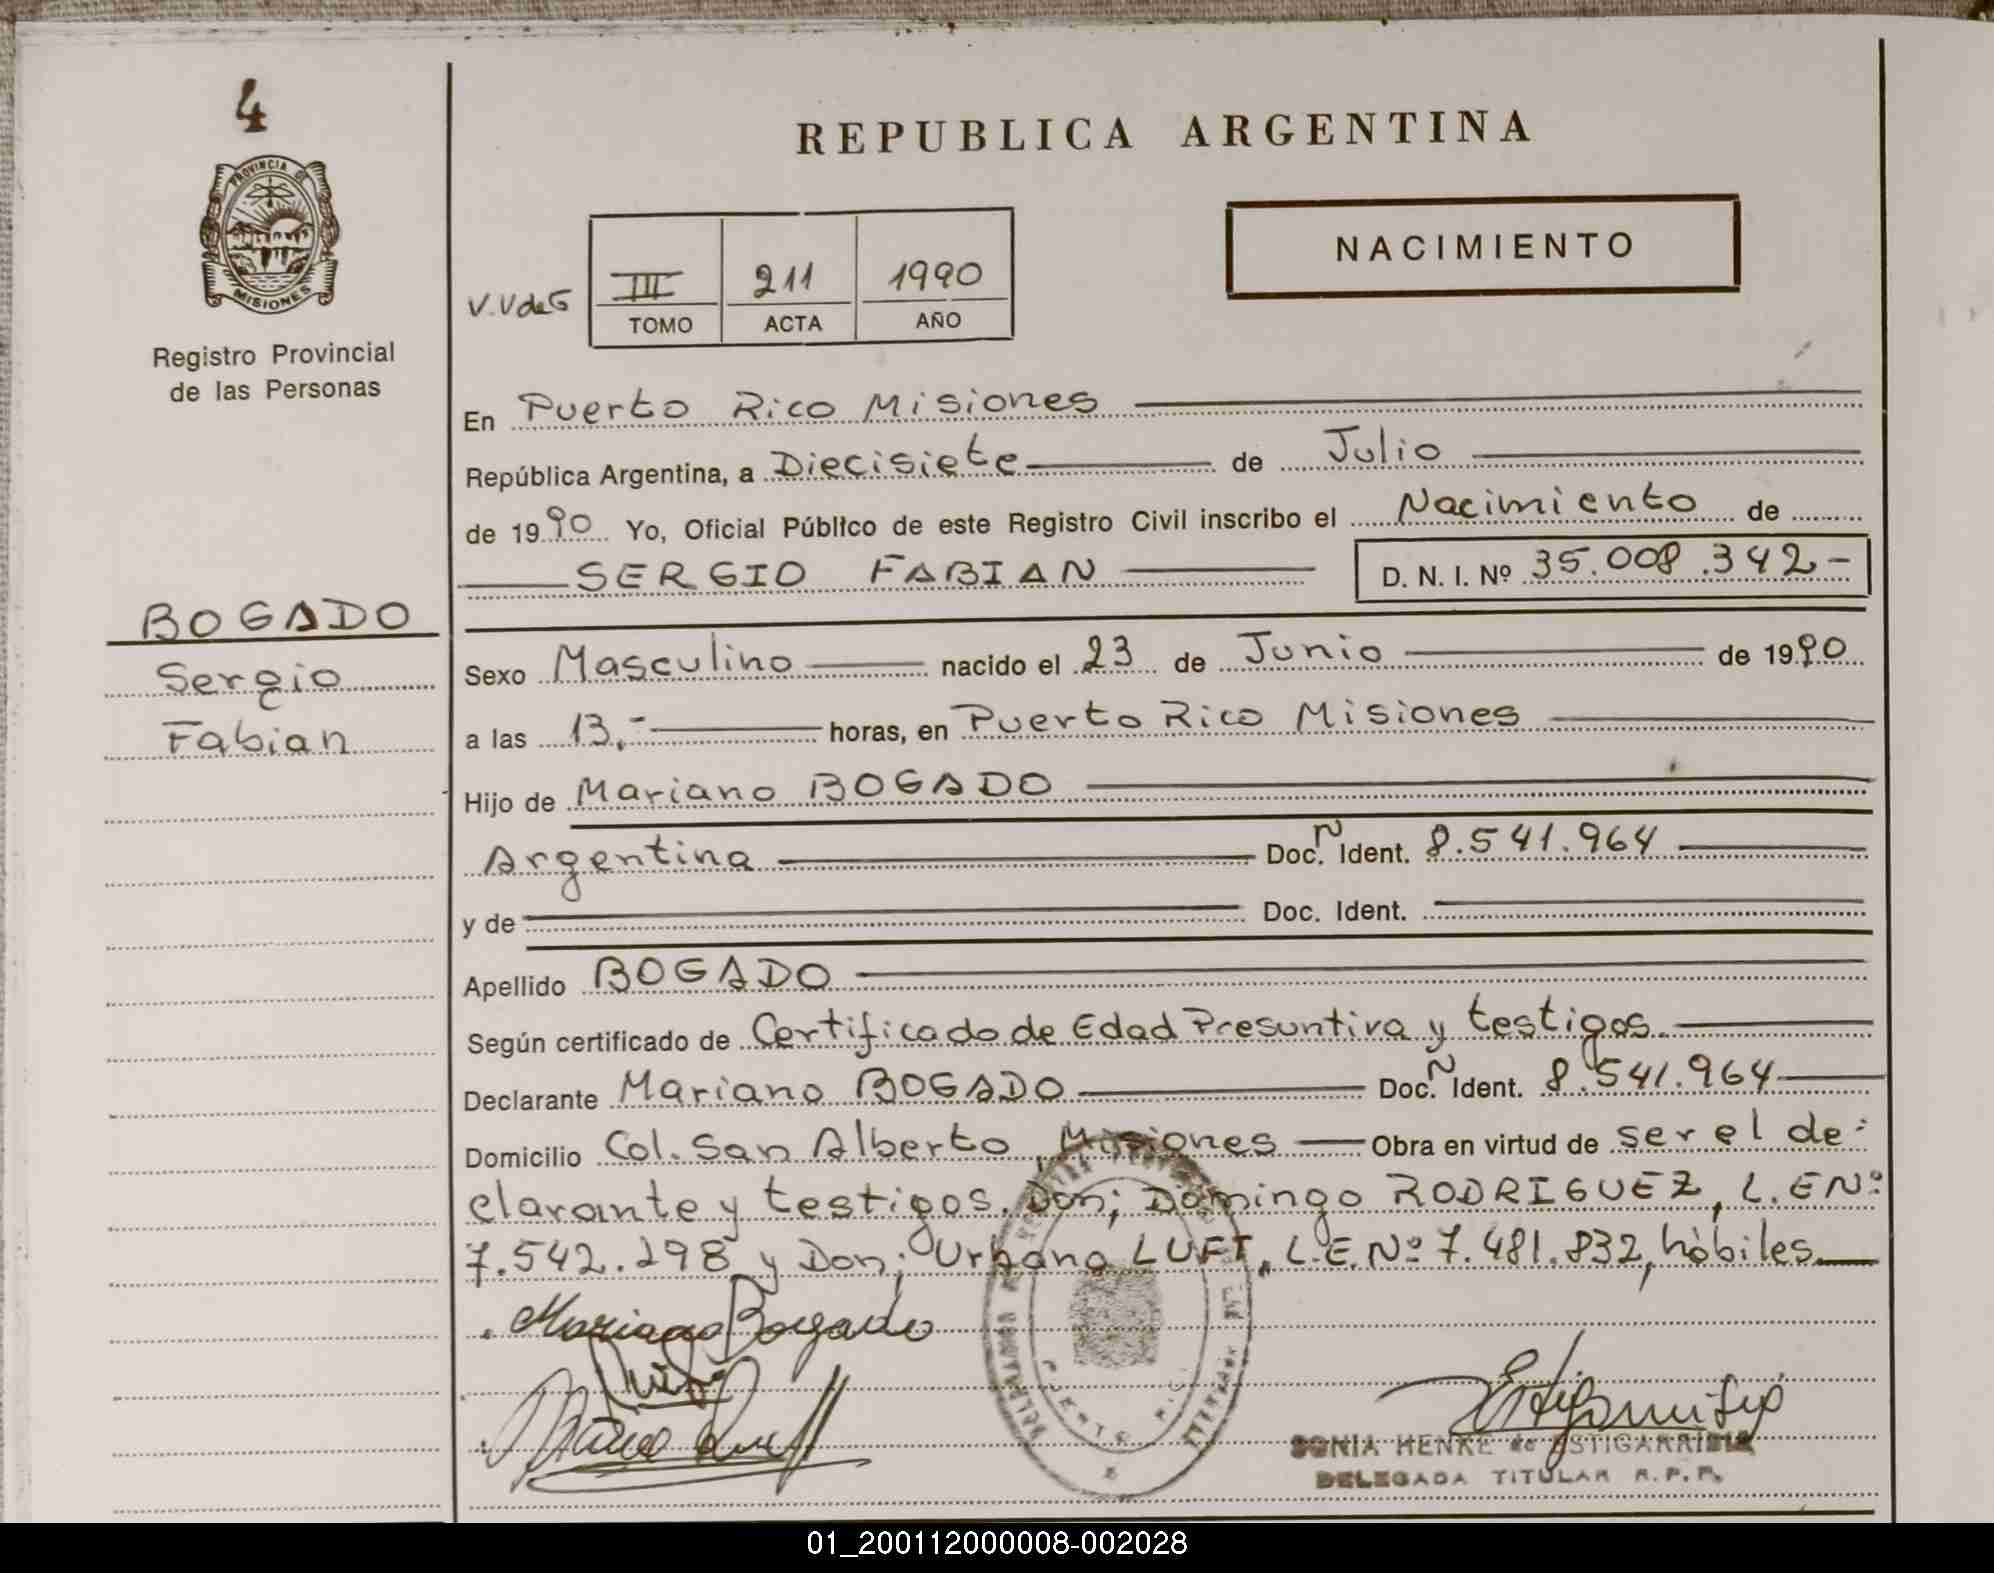 4
PROVINCIA DE
MISIONES
Registro Provincial
de las Personas
REPUBLICA ARGENTINA
NACIMIENTO
V.VdeG
III 211 1990
TOMO ACTA AÑO
En Puerto Rico Misiones
República Argentina, a Diecisiete de Julio
de 1990 Yo, Oficial Público de este Registro Civil inscribo el Nacimiento de
SERGIO FABIAN D. N. I. Nº 35.008.342-
BOGADO
Sergio
Fabian
Sexo Masculino nacido el 23 de Junio de 1990
a las 13,- horas, en Puerto Rico Misiones
Hijo de Mariano BOGADO
Argentina Doc. Ident. 8.541.964
y de Doc. Ident.
Apellido BOGADO
Según certificado de Certificado de Edad Presuntiva y testigos.
Declarante Mariano BOGADO Doc. Ident. 8.541.964
Domicilio Col. San Alberto, Misiones Obra en virtud de ser el de-
clarante y testigos. Don; Domingo RODRIGUEZ, L.E Nº
7.542.298 y Don; Urbano LUFT, L.E.Nº 7.481.832, hàbiles.
Mariano Bogado
SONIA HENKE de ESTIGARRIBIA
DELEGADA TITULAR R.P.P.
01_200112000008-002028